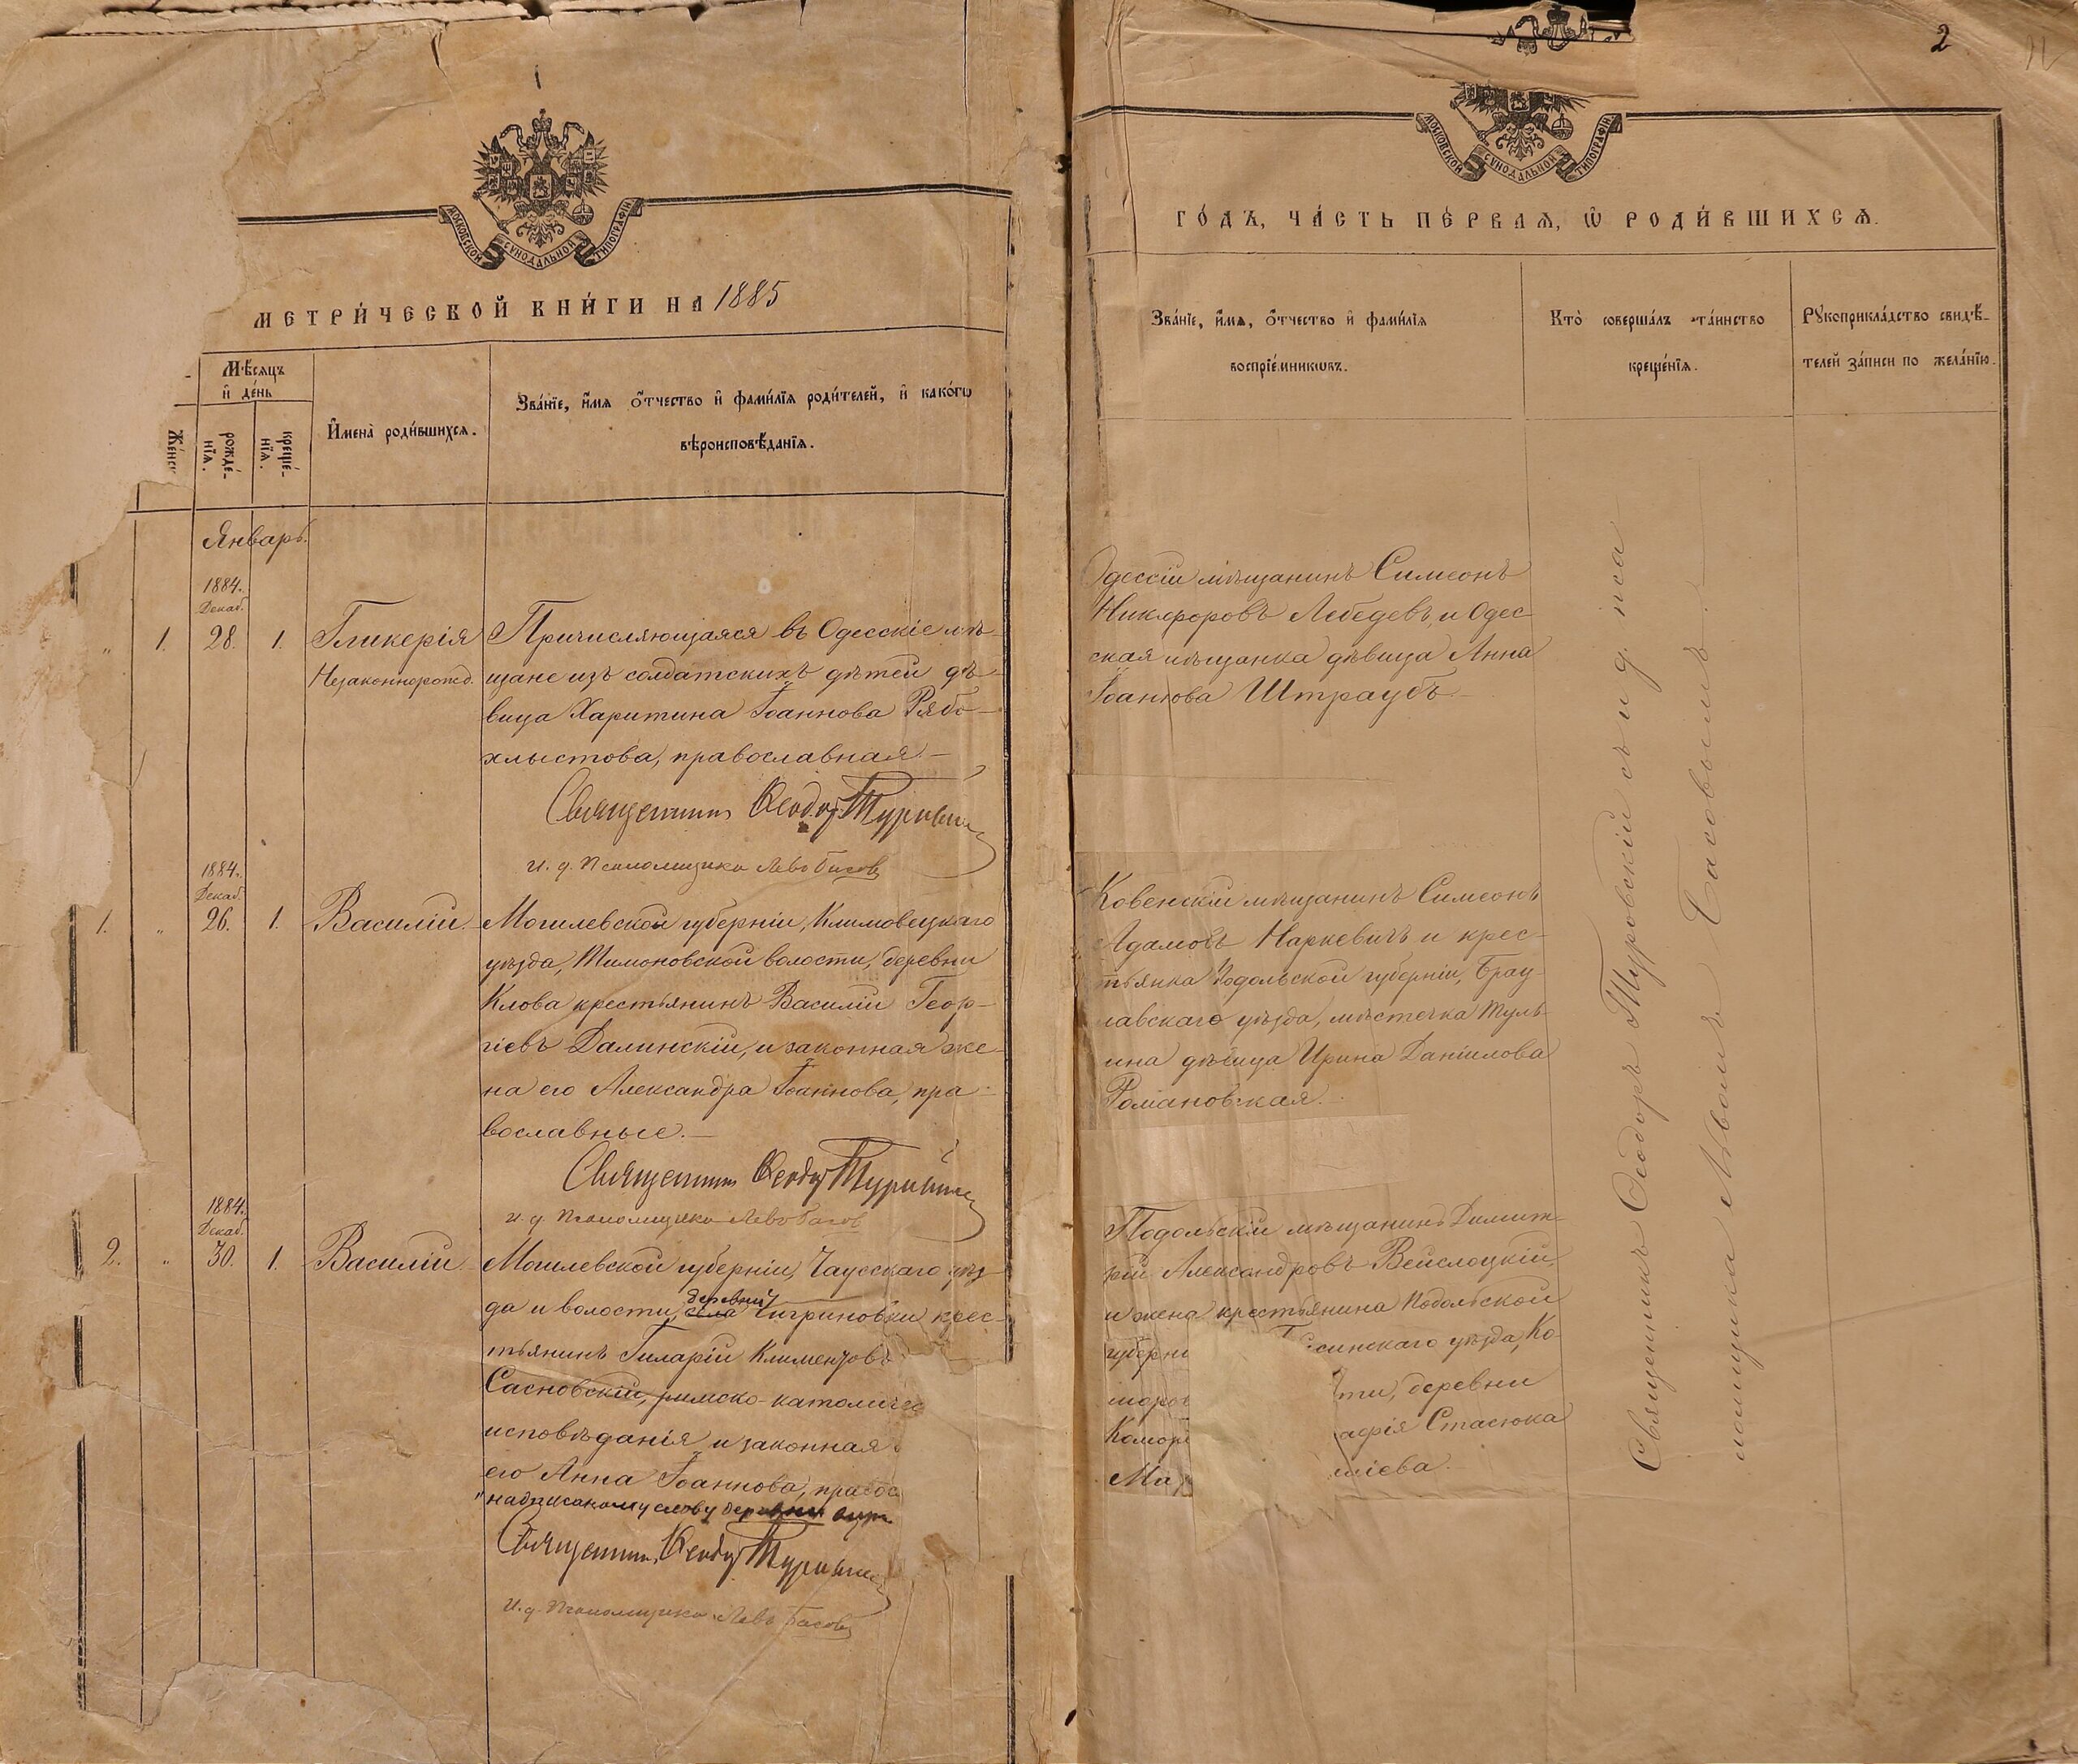 МОСКОВСКОЙ СѴНОДАЛЬНОЙ ТИПОГРАФІИ
МЕТРИ́ЧЕСКОЙ КНИ́ГИ НА 1885
Мѣ́сяцъ
и҆ де́нь
Же́нск
рожде́-
нїѧ.
креще́-
нїѧ.
И҆мена̀ роди́вшихсѧ.
Зва́нїе, и҆́мѧ ѻ҆́тчество и҆ фами́лїѧ роди́телей, и҆ како́гѡ
вѣроисповѣ́данїѧ.
Январь.
1884.
Декаб.
" 1. 28. 1. Гликерія
Незаконнорожд.
Причисляющаяся въ Одесскіе мѣ-
щане изъ солдатскихъ дѣтей дѣ-
вица Харитина Іоаннова Рябо-
хлыстова, православная.—
Священникъ Ѳеодоръ Туровскій
И. д. Псаломщика Левъ Басовъ
1884.
Декаб.
1. " 26. 1. Василій.
Могилевской губерніи, Климовецкаго
уѣзда, Тимоновской волости, деревни
Клова крестьянинъ Василій Геор-
гіевъ Далинскій, и законная же-
на его Александра Іоаннова, пра-
вославные.—
Священникъ Ѳеодоръ Туровскій
И. д. Псаломщика Левъ Басовъ
1884.
Декаб.
2. " 30. 1. Василій.
Могилевской губерніи, Чаусскаго уѣз-
да и волости, села деревни Чигриновки крес-
тьянинъ Гиларій Климентовъ
Сасновскій, римско-католичес
исповѣданія и законная
его Анна Іоаннова, правос
надписанному слову деревни вѣр.
Священникъ Ѳеодоръ Туровскій
И. д. Псаломщика Левъ Басовъ
2
МОСКОВСКОЙ СѴНОДАЛЬНОЙ ТИПОГРАФІИ
ГО́ДЪ, ЧА́СТЬ ПЕ́РВАѦ, Ѡ҆ РОДИ́ВШИХСѦ.
Зва́нїе, и҆́мѧ, ѻ҆́тчество и҆ фами́лїѧ
воспрїе́мникѡвъ.
Кто̀ соверша́лъ та́инство
креще́нїѧ.
Рꙋкоприкла́дство свидѣ́-
телей за́писи по жела́нїю.
Одесскій мѣщанинъ Симеонъ
Никифоровъ Лебедевъ, и Одес-
ская мѣщанка дѣвица Анна
Іоаннова Штраубъ.—
Ковенскій мѣщанинъ Симеонъ
Адамовъ Наркевичъ и крес-
тьянка Подольской губерніи, Брац-
лавскаго уѣзда, мѣстечка Туль-
чина дѣвица Ирина Даніилова
Романовская.—
Подольскій мѣщанинъ Димит-
рій Александровъ Вейслоцкій,
и жена крестьянина Подольской
губерні синскаго уѣзда, Ко-
марог сти, деревни
Комор афія Стасюка
Ма ліева.—
Священникъ Ѳеодоръ Туровскій съ и. д. пса-
ломщика Львомъ Басовымъ.—